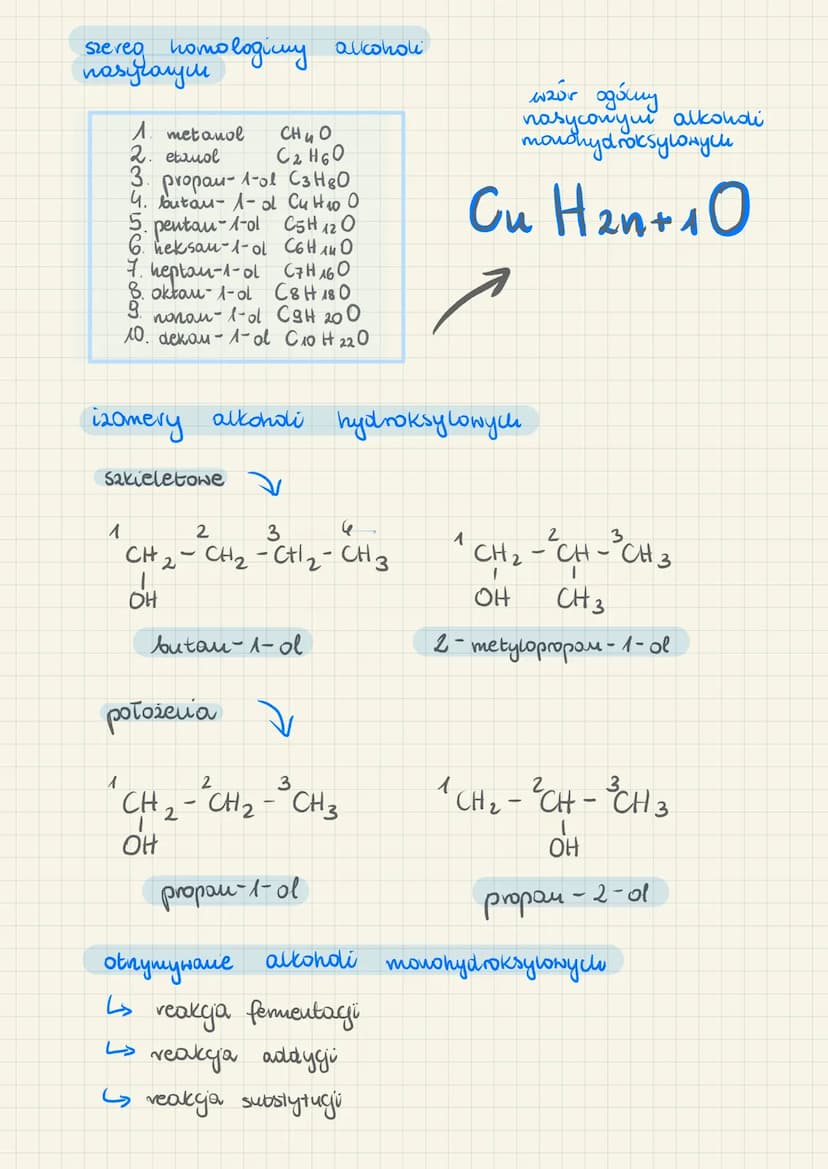 szereg homologiczny alkoholi
nasyconych
1. metanol CH4O
2. etanol C2H6O
3. propan-1-ol C3H8O
4. butan-1-ol C4H10O
5. pentan-1-ol C5H12O
6. heksan-1-ol C6H14O
7. heptan-1-ol C7H16O
8. oktan-1-ol C8H18O
9. nonan-1-ol C9H20O
10. dekan-1-ol C10H22O
wzór ogólny
nasyconym alkoholi
monohydroksylowych
CnH2n+1O
izomery alkoholi hydroksylowych
szkieletowe
1 2 3 4
CH2-CH2-CH2-CH3
OH
butan-1-ol
1 2 3
CH2-CH-CH3
OH CH3
2-metylopropan-1-ol
położenia
1 2 3
CH2-CH2-CH3
OH
propan-1-ol
1 2 3
CH2-CH-CH3
OH
propan-2-ol
otrzymywanie alkoholi monohydroksylowych
↳ reakcja fermentacji
↳ reakcja addycji
↳ reakcja substytucji